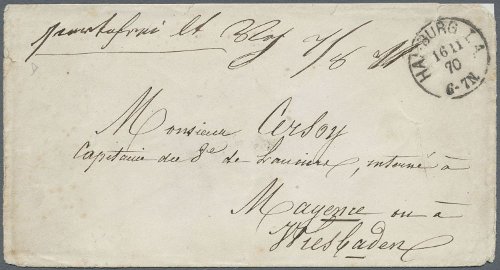 portofrei lt
HAMBURG I.A.
16 11
70
6-7N.
Monsieur Cersoy
Capitaine au 8e de Lanciers, interné à
Mayence ou à
Wiesbaden